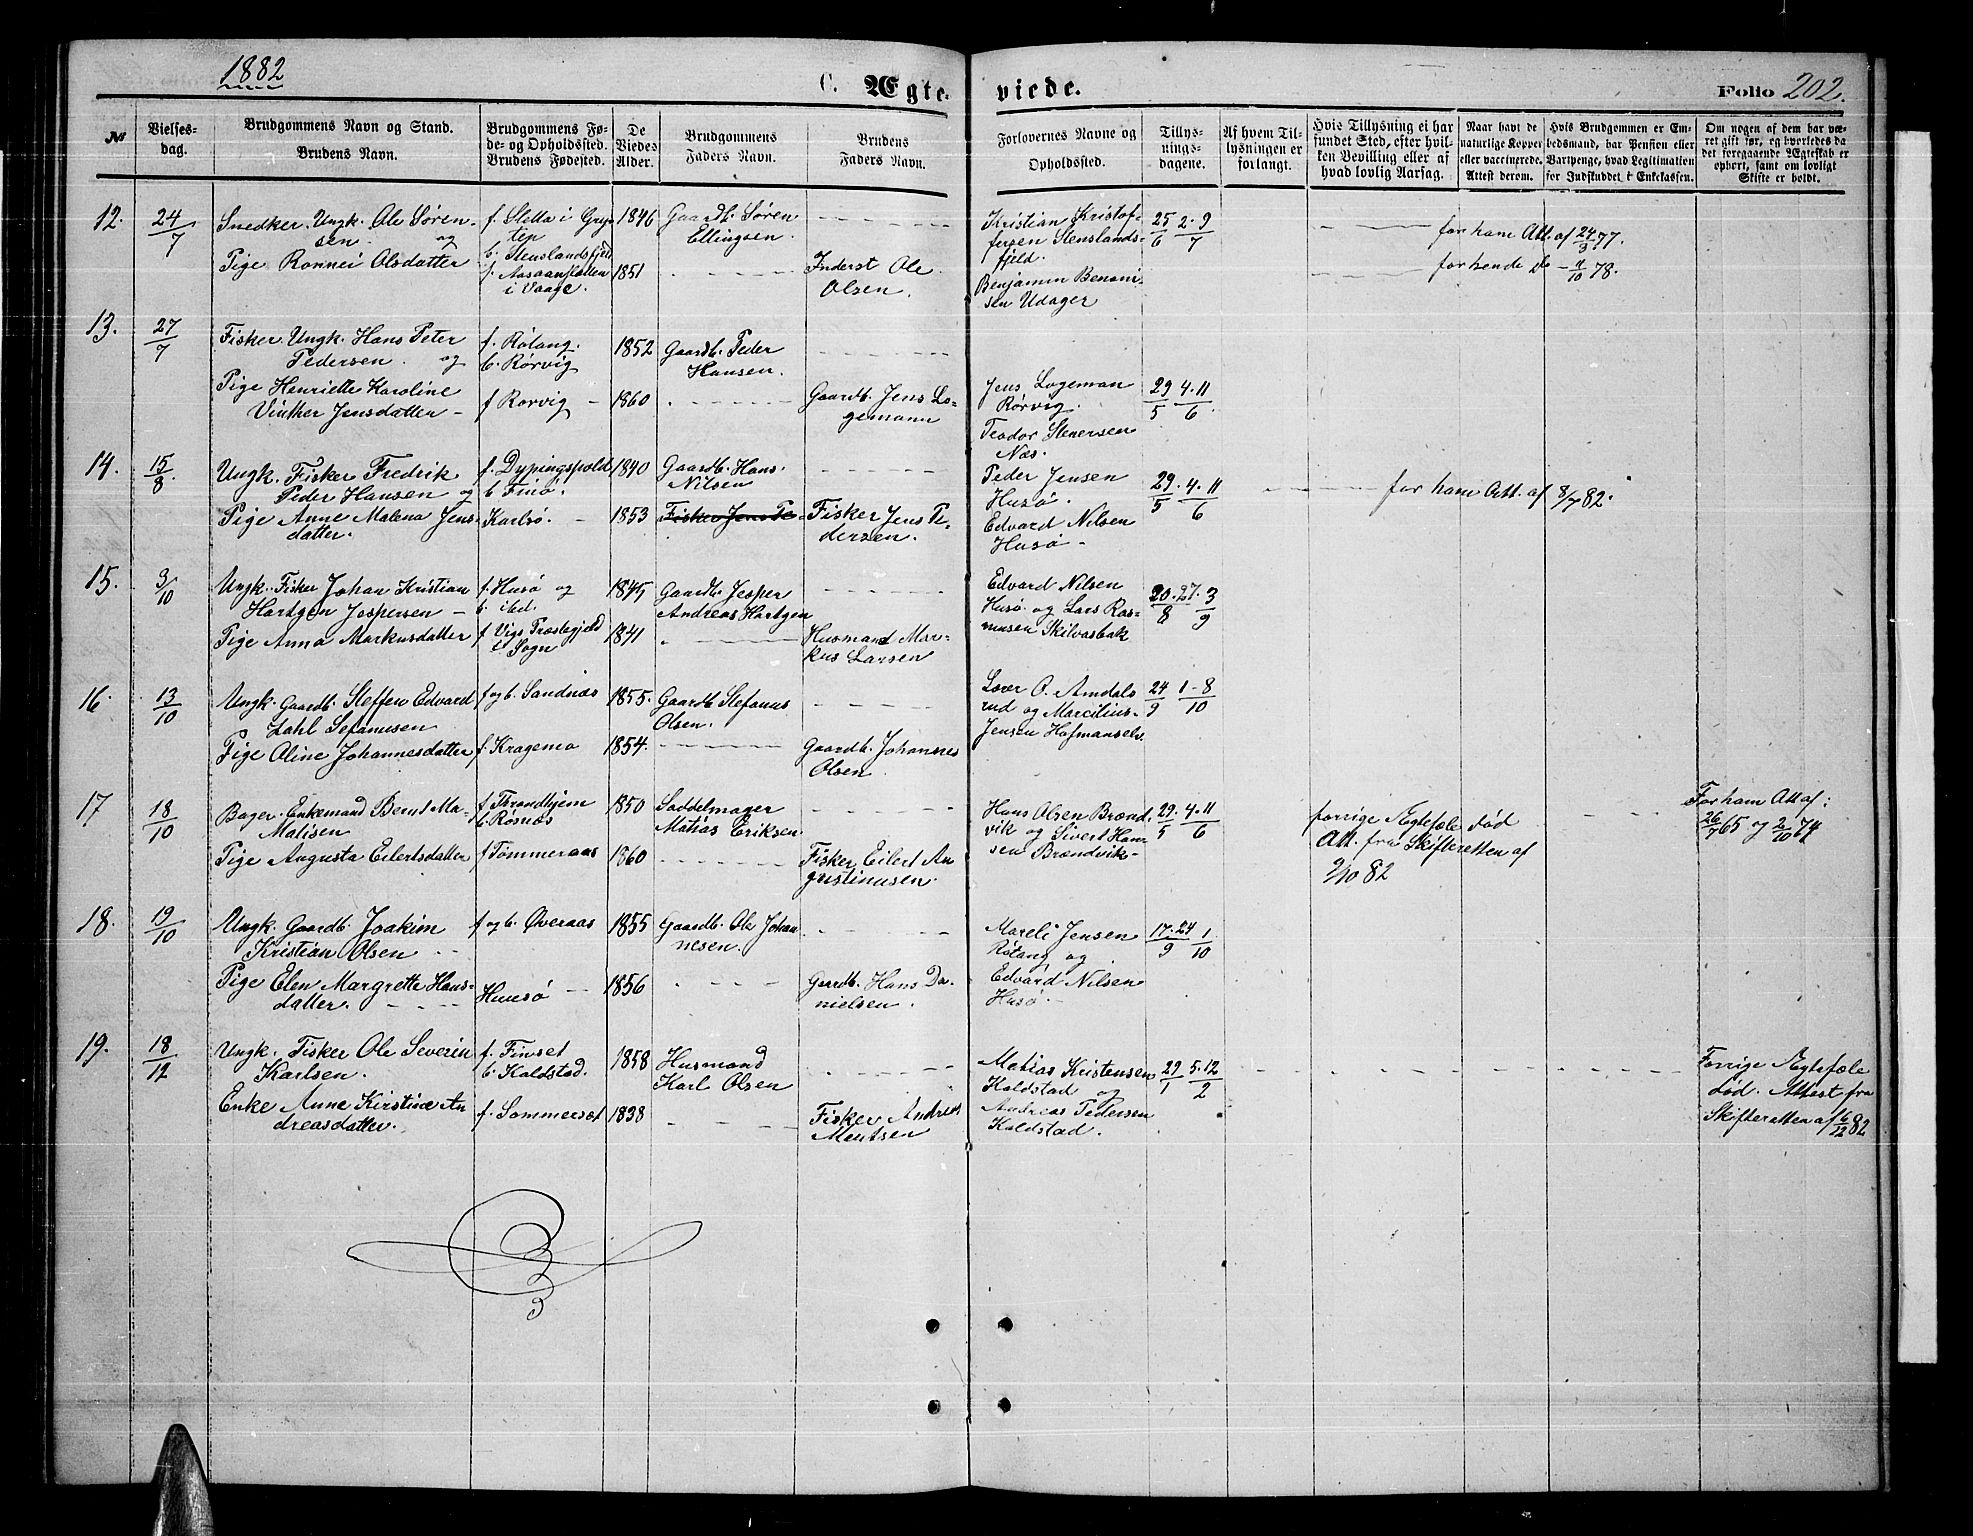 1882
C. Ægte-
viede.
Folio 202.
№
Vielses-
dag.
Brudgommens Navn og Stand.
Brudens Navn.
Brudgommens Fø-
de- og Opholdssted.
Brudens Fødested.
De
Viedes
Alder.
Brudgommens
Faders Navn.
Brudens
Faders Navn.
Forlovernes Navne og
Opholdssted.
Tillys-
nings-
dagene.
Af hvem Til-
lysningen er
forlangt.
Hvis Tillysning ei har
fundet Sted, efter hvil-
ken Bevilling eller af
hvad lovlig Aarsag.
Naar havt de
naturlige Kopper
eller vaccinerede.
Attest derom.
Hvis Brudgommen er Em-
bedsmand, har Pension eller
Vartpenge, hvad Legitimation
for Indskuddet i Enkekassen.
Om nogen af dem har væ-
ret gift før, og hvorledes da
det foregaaende Ægteskab er
ophørt, samt om lovligt
Skifte er holdt.
12. 24/7
Snedker Ungk. Ole Søren-
sen og
Pige Ronnei Olsdatter
f. Sletta i Gry-
ten
b. Stenslandsfjeld
f. i Vaage
1846
1851
Gaardb. Søren
Ellingsen.
Inderst Ole
Olsen.
Kristian Kristof-
fersen Stenslands-
fjeld.
Benjamin Benoni-
sen Udager
25/6 2. 9/7
for ham Att. af 24/3 77.
for hende do - 11/10 78.
13. 27/7
Fisker Ungk. Hans Peter
Pedersen og
Pige Henriette Karoline
Vinther Jensdatter -
f. Røtang.
b. Rørvig
f Rørvig -
1852
1860
Gaardb. Peder
Hansen.
Gaardb. Jens Lo-
gemann
Jens Logeman
Rørvig.
Teodor Stenersen
Næs.
29/5 4. 11/6
14. 15/8
Ungk. Fisker Fredrik
Peder Hansen og
Pige Anne Malena Jens-
datter.
f. Dypingspold
b Finø.
Karlsø. -
1840
1853
Gaardb. Hans
Nilsen
Fisker Jens Pe-
Fisker Jens Pe-
dersen.
Peder Jensen
Husø.
Edvard Nilsen
Husø -
29/5 4. 11/6
for ham Att. af 8/7 82.
15. 3/10
Ungk. Fisker Johan Kristian
Hartgen Jespersen -
Pige Anna Markusdatter
f. Husø og
b. ibd.
f Vigs Præstegjeld
i Sogn
1845
1841
Gaardb. Jesper
Andreas Hartgen
Husmand Mar-
kus Larsen
Edvard Nilsen
Husø og Lars Ras-
musen Skilvasbak
20/8 27. 3/9
16. 13/10
Ungk. Gaardb. Steffen Edvard
Zahl Sefanusen
Pige Oline Johannesdatter
f og b. Sandnæs
f. Kragemo
1855.
1854.
Gaardb Stefanus
Olsen.
Gaardb. Johannes
Olsen
O. Amdals
rud og Marcilius
Jensen Hofmanselv
24/9 1 - 8/10
17 18/10
Bager. Enkemand Bernt Ma-
Matisen
Pige Augusta Eilertsdatter
f Throndhjem
b. Røsnæs
f Tømmeraas
1850
1860
Saddelmager
Matias Eriksen
Fisker Eilert An
gustinusen.
Hans Olsen Brænd-
vik og Sivert Han-
sen Brændvik -
29/5 4. 11/6
forrige Ægtefæle død
Att. fra Skifteretten af
9/10 82
For ham Att af:
26/7 65 og 2/10 74
18. 19/10
Ungk. Gaardb. Joakim
Kristian Olsen
Pige Elen Margrette Hans-
datter.
f og b. Øveraas
Husø
1855
1856
Gaardb. Ole Johan
nesen.
Gaardb. Hans Da-
nielsen.
Mareli Jensen
Røtang og
Edvard Nilsen
Husø.
17/9 24 1/10
19. 18/12
Ungk. Fisker Ole Severin
Karlsen.
Enke Anne Kirstine An
dreasdatter.
f. Finset
b. Kaldstad.
f. Sommerset
1858
1838
Husmand
Karl Olsen
Fisker Andreas
Mentsen
Matias Kristensen
Kaldstad og
Andreas Pedersen
Kaldstad.
29/1 5. 12/2
Forrige Ægtefæle
død. Attest fra
Skifteretten af 6/12 82